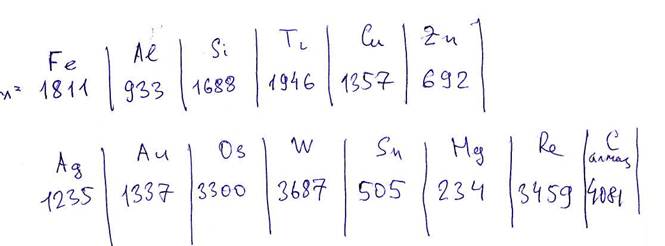 Fe | Al | Si | Ti | Cu | Zn |
1811 | 933 | 1688 | 1946 | 1357 | 692 |
Ag | Au | Os | W | Sn | Hg | Re | C алмаз |
1235 | 1337 | 3300 | 3687 | 505 | 234 | 3459 | 4081 |